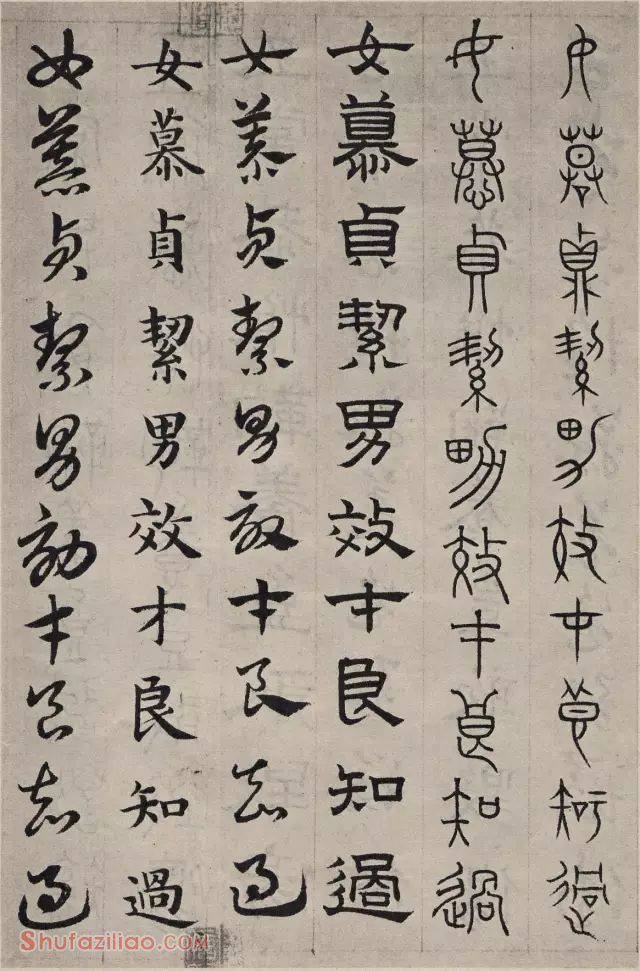 女慕貞絜男效才良知過
女慕貞絜男效才良知過
女慕貞絜男效才良知過
女慕貞絜男效才良知過
女慕貞絜男效才良知過
女慕貞絜男效才良知過
Shufaziliao.COM